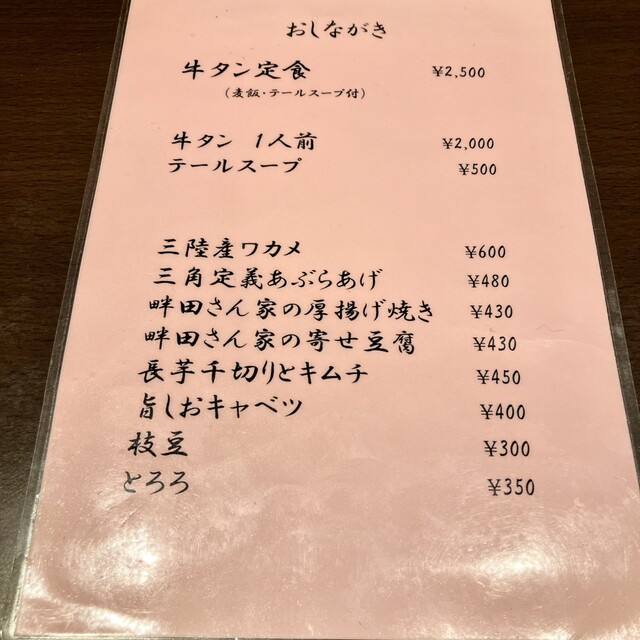 おしながき
牛タン定食 ¥2,500
(麦飯・テールスープ付)
牛タン 1人前 ¥2,000
テールスープ ¥500
三陸産ワカメ ¥600
三角定義あぶらあげ ¥480
畔田さん家の厚揚げ焼き ¥430
畔田さん家の寄せ豆腐 ¥430
長芋千切りとキムチ ¥450
旨しおキャベツ ¥400
枝豆 ¥300
とろろ ¥350